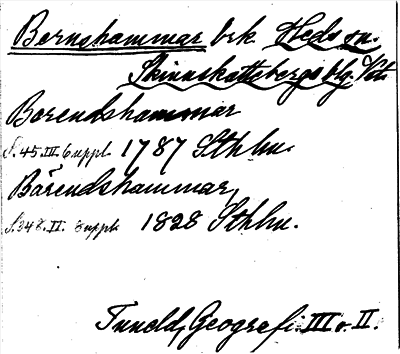 Bernshammar brk Heds sn.
Skinnskattebergs blg. Vstm.
Borendshammar
S. 45. III. 6 uppl. 1787 Sthlm.
Bärendshammar
S. 348. II. 8 uppl. 1828 Sthlm.
Tuneld, Geografi. III o. II.